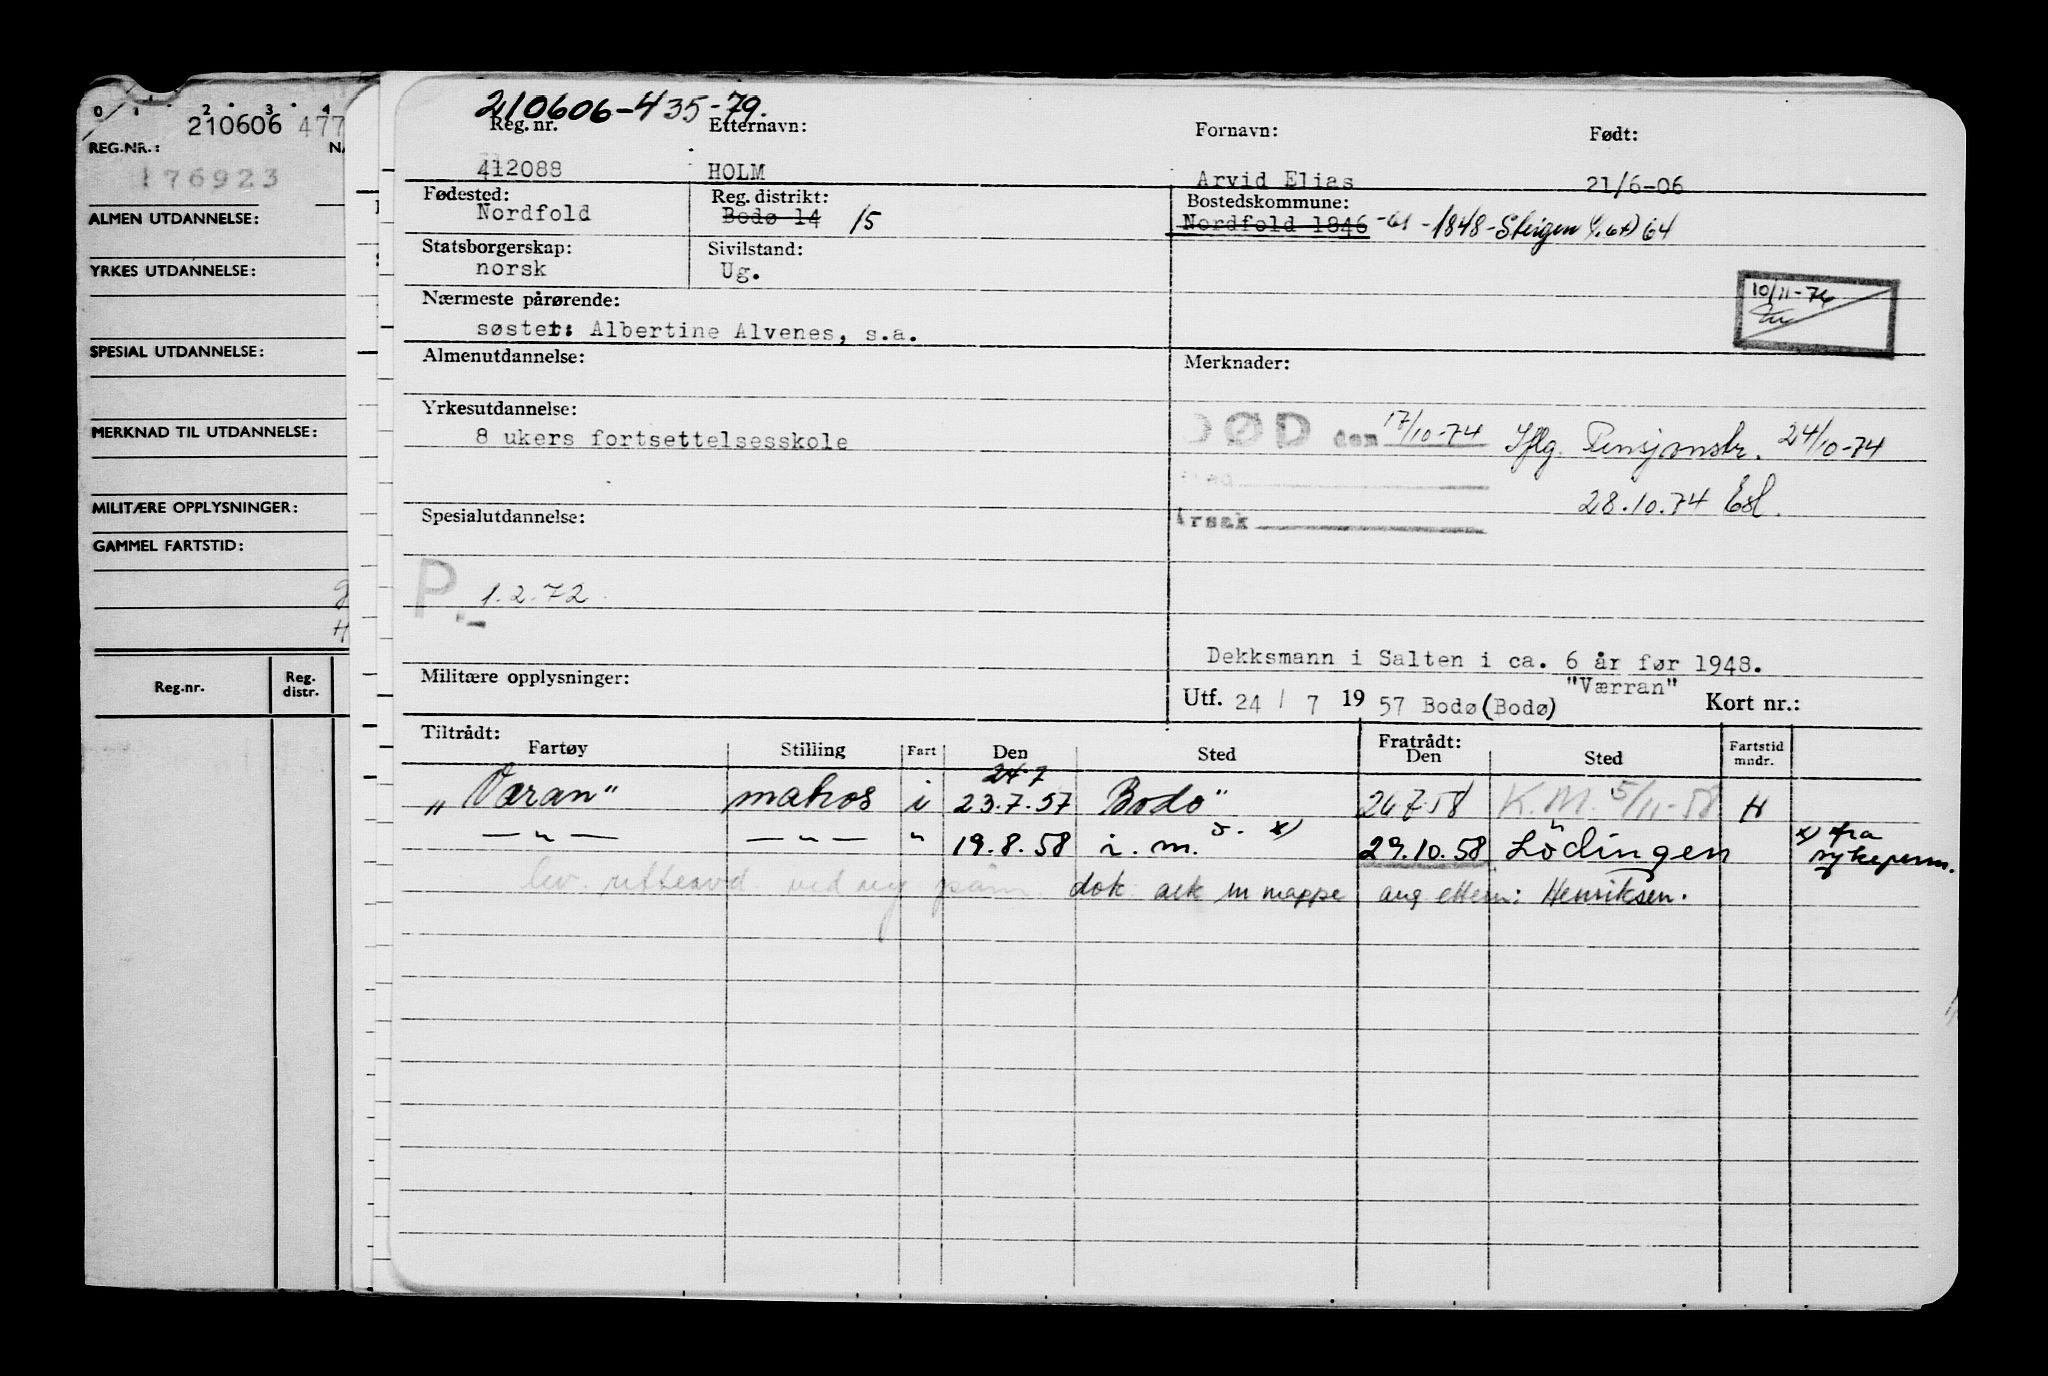 0 1 2 3 4
210606 477
REG.NR.:
176923
ALMEN UTDANNELSE:
YRKES UTDANNELSE:
SPESIAL UTDANNELSE:
MERKNAD TIL UTDANNELSE:
MILITÆRE OPPLYSNINGER:
GAMMEL FARTSTID:
Reg.nr. Reg. distr.
210606-435-79.
Reg. nr. Etternavn: Fornavn: Født:
412088 HOLM Arvid Elias 21/6-06
Fødested: Reg. distrikt: Bostedskommune:
Nordfold Bodø 14 15 Nordfold 1846 -61 -1848- Steigen 64
Statsborgerskap: Sivilstand:
norsk Ug.
Nærmeste pårørende:
10/11-74
søster: Albertine Alvenes, s.a.
Almenutdannelse: Merknader:
Yrkesutdannelse:
8 ukers fortsettelsesskole
DØD den 17/10-74 Iflg. Pensjonstr. 24/10-74
28.10.74 Esl.
Årsak
Spesialutdannelse:
P. 1.2.72
Dekksmann i Salten i ca. 6 år før 1948.
"Værran"
Militære opplysninger: Utf. 24 / 7 1957 Bodø (Bodø) Kort nr.:
Tiltrådt: Fratrådt:
Fartøy Stilling Fart Den Sted Den Sted Fartstid mndr.
24.7
"Væran" matros i 23.7.57 Bodø 26.7.58 K.M. 5/11-58 H
— " — — " — " 19.8.58 i. m. x) 29.10.58 Lödingen x) fra sykeperm.
dok. ark m mappe ang ettern: Henriksen.